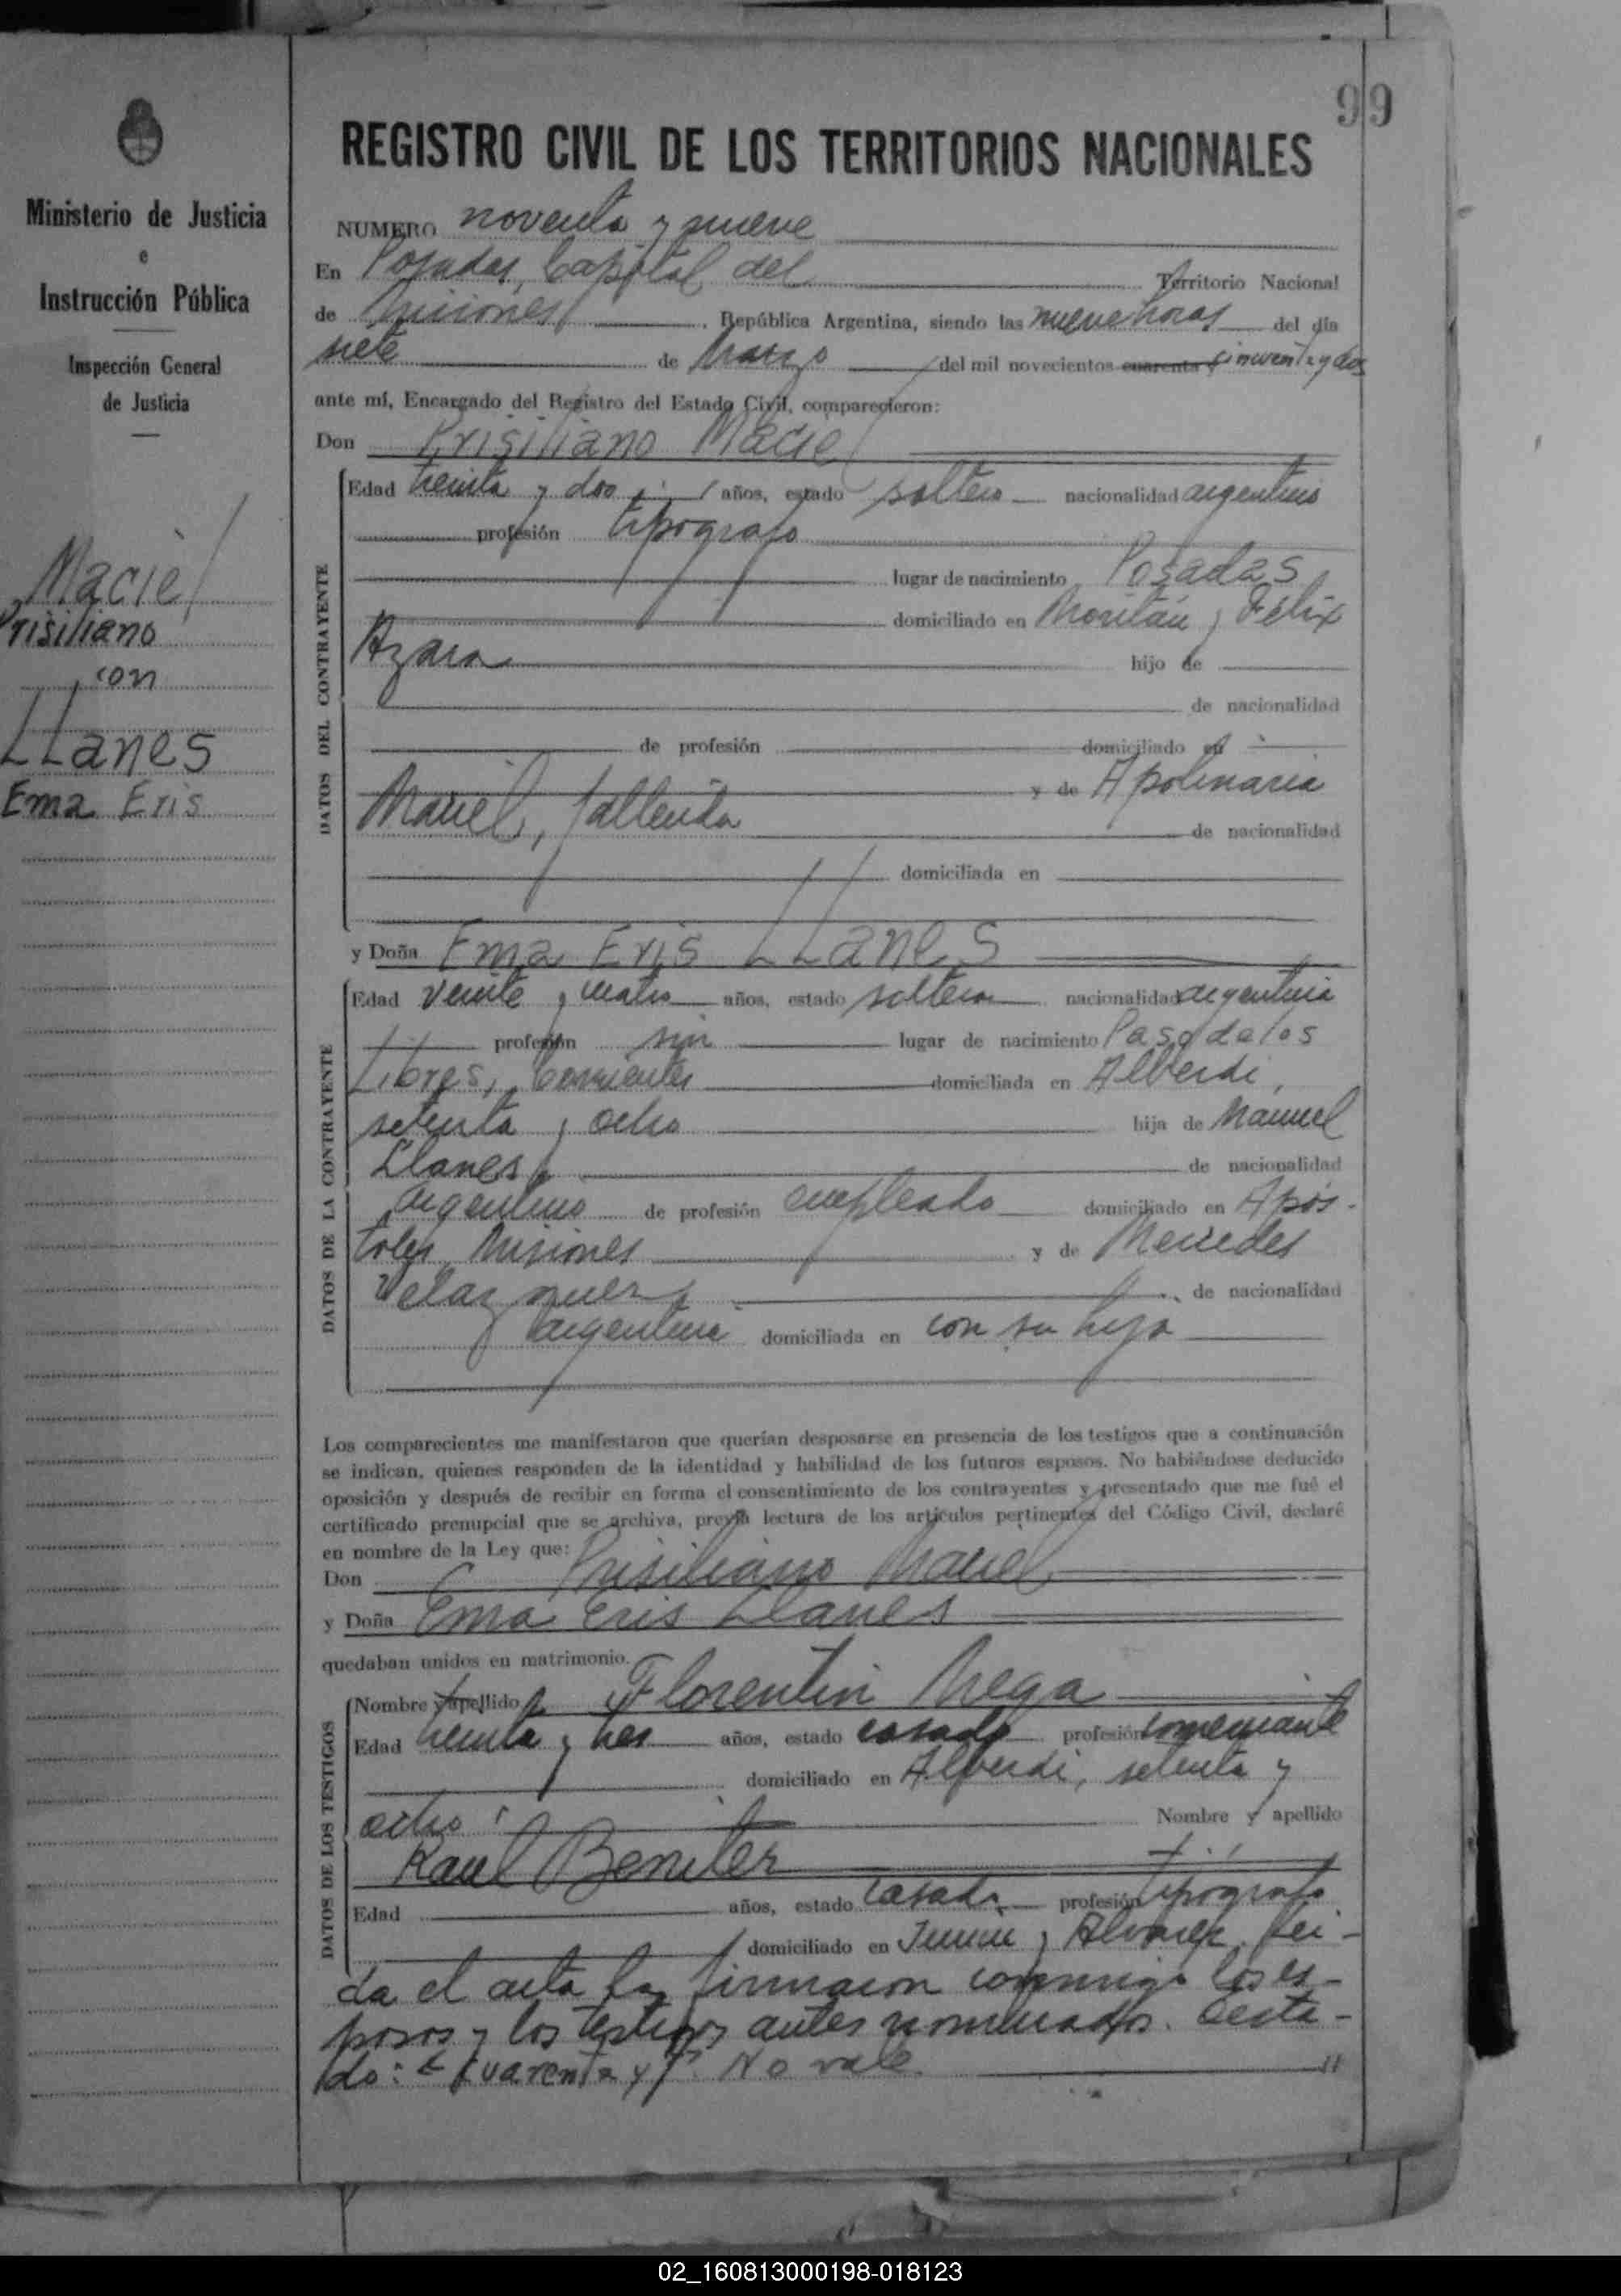 99
Ministerio de Justicia
e
Instrucción Pública
Inspección General
de Justicia
Maciel
Prisiliano
con
LLanes
Ema Eris
REGISTRO CIVIL DE LOS TERRITORIOS NACIONALES
NUMERO noventa y nueve
En Posadas, Capital del Territorio Nacional
de Misiones, República Argentina, siendo las nueve horas del día
siete de Marzo del mil novecientos cuarenta y cincuenta y dos
ante mí, Encargado del Registro del Estado Civil, comparecieron:
Don Prisiliano Maciel
DATOS DEL CONTRAYENTE
Edad treinta y dos años, estado soltero nacionalidad argentino
profesión tipografo
lugar de nacimiento Posadas
domiciliado en Moritán y Félix
Azara hijo de
de nacionalidad
de profesión domiciliado en
y de Apolinaria
Maciel, fallecida de nacionalidad
domiciliada en
y Doña Ema Eris LLanes
DATOS DE LA CONTRAYENTE
Edad veinte y cuatro años, estado soltera nacionalidad argentina
profesión sin lugar de nacimiento Paso de los
Libres, Corrientes domiciliada en Alberdi,
setenta y ocho hija de Manuel
Llanes, de nacionalidad
argentino de profesión empleado domiciliado en Após-
toles, Misiones y de Mercedes
Velazquez, de nacionalidad
argentina domiciliada en con su hija
Los comparecientes me manifestaron que querían desposarse en presencia de los testigos que a continuación
se indican, quienes responden de la identidad y habilidad de los futuros esposos. No habiéndose deducido
oposición y después de recibir en forma el consentimiento de los contrayentes y presentado que me fué el
certificado prenupcial que se archiva, previa lectura de los artículos pertinentes del Código Civil, declaré
en nombre de la Ley que:
Don Prisiliano Maciel
y Doña Ema Eris Llanes
quedaban unidos en matrimonio.
DATOS DE LOS TESTIGOS
Nombre y apellido Florentin Mega
Edad treinta y tres años, estado casado profesión comerciante
domiciliado en Alberdi, setenta y
ocho Nombre y apellido
Raul Benitez
Edad años, estado casado profesión tipografo
domiciliado en Junin y Alvarez. Lei-
da el acta la firmaron conmigo los es-
posos y los testigos antes nombrados. Testa-
do: "cuarenta y" No vale
02_160813000198-018123